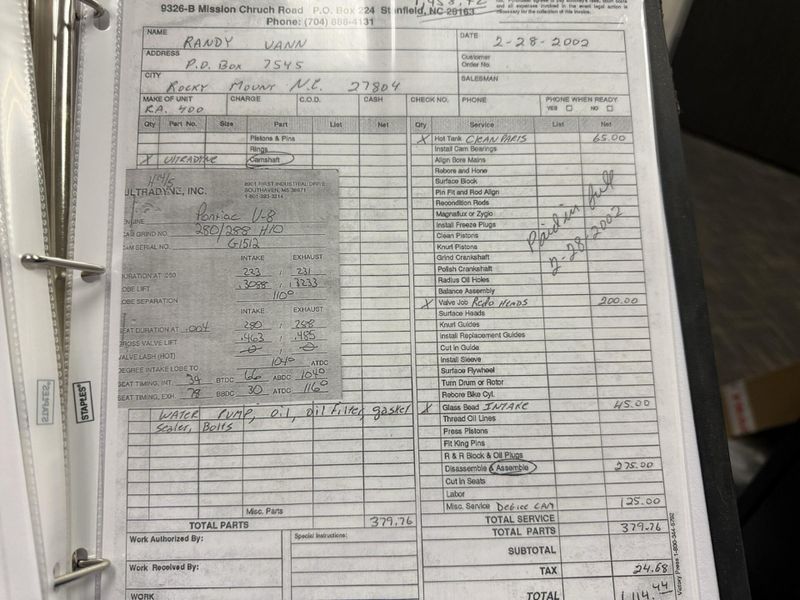 9326-B Mission Chruch Road P.O. Box 224 Stanfield, NC 28163
Phone: (704) 888-4131
necessary for the collection of this invoice.
NAME RANDY VANN
DATE 2-28-2002
ADDRESS P.O. Box 7545
Customer Order No.
CITY ROCKY MOUNT N.C. 27804
SALESMAN
MAKE OF UNIT CHARGE C.O.D. CASH CHECK NO. PHONE PHONE WHEN READY
RA. 400 YES NO
Qty Part No. Size Part List Net
Pistons & Pins
Rings
X ULTRADYNE Camshaft
ULTRADYNE, INC.
SOUTHAVEN, MS 38671
ENGINE Pontiac V-8
CAM GRIND NO. 280/288 H10
CAM SERIAL NO. G1512
INTAKE EXHAUST
DURATION AT .050 223 231
LOBE LIFT .3088 .3233
LOBE SEPARATION 110°
INTAKE EXHAUST
SEAT DURATION AT .004 280 288
GROSS VALVE LIFT .463 .485
VALVE LASH (HOT) 0 0
DEGREE INTAKE LOBE TO 104° ATDC
SEAT TIMING, INT. 34 BTDC 66 ABDC 104°
SEAT TIMING, EXH. 78 BBDC 30 ATDC 116°
WATER PUMP, oil, oil filter, gasket
sealer, Bolts
Misc. Parts
TOTAL PARTS 379.76
Work Authorized By:
Special Instructions:
Work Received By:
WORK
Qty Service List Net
X Hot Tank CLEAN PARTS 65.00
Install Cam Bearings
Align Bore Mains
Rebore and Hone
Surface Block
Pin Fit and Rod Align
Recondition Rods
Magnaflux or Zyglo
Install Freeze Plugs
Clean Pistons
Knurl Pistons
Grind Crankshaft
Polish Crankshaft
Radius Oil Holes
Balance Assembly
Paid in full
2-28-2002
X Valve Job REDO HEADS 200.00
Surface Heads
Knurl Guides
Install Replacement Guides
Cut in Guide
Install Sleeve
Surface Flywheel
Turn Drum or Rotor
Rebore Bike Cyl.
X Glass Bead INTAKE 45.00
Thread Oil Lines
Press Pistons
Fit King Pins
R & R Block & Oil Plugs
Disassemble & Assemble 275.00
Cut in Seats
Labor
Misc. Service Degree CAM 125.00
TOTAL SERVICE
TOTAL PARTS 379.76
SUBTOTAL
TAX 24.68
TOTAL 1,114.44
STAPLES
STAPLES